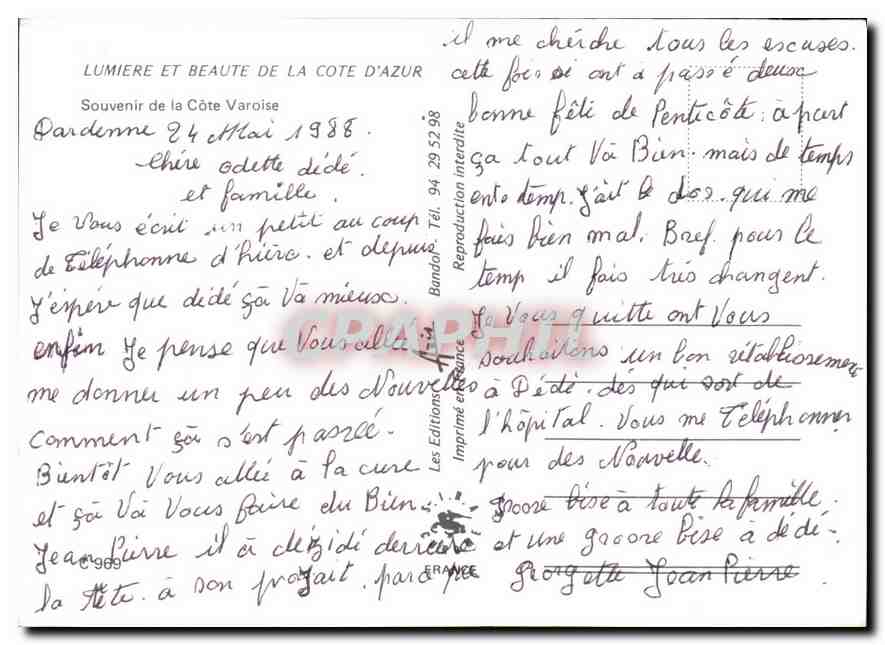 LUMIERE ET BEAUTE DE LA COTE D'AZUR
Souvenir de la Côte Varoise
Dardenne 24 Mai 1988.
Chére odette dédé.
et famille.
Je Vous écrit un petit au coup
de Téléphonne d'hièra. et depuis
J'espére que dédé çà Và mieuse.
enfin Je pense que Vous allé
me donner un peu des Nouvelles
comment çà s'est passée.
Bientôt Vous allée à la cure
et çà Và Vous faire du Bien.
Jean Pierre il à dézidé derriere
la tête. à son projait. parce que
il me chérche tous les escuses.
cette fois si ont à passé deuse
bonne fêti de Pentecôte. à part
ça tout Và Bien. mais de temps
ento temp. J'ait le dos. qui me
fais bien mal. Bref. pour le
temp il fais trés changent.
Je Vous quitte ont Vous
souhaitons un bon rétablissement
à Dédé. dés qui sort de
l'hôpital. Vous me Téléphonner
pour des Nouvelle.
Groose bise à toute la famille.
et une groose bise à dédé.
Georgette Jean Pierre.
Les Editions Bandol - Tél. 94 29 52 98
Imprimé en France Reproduction interdite
C 969
FRANCE